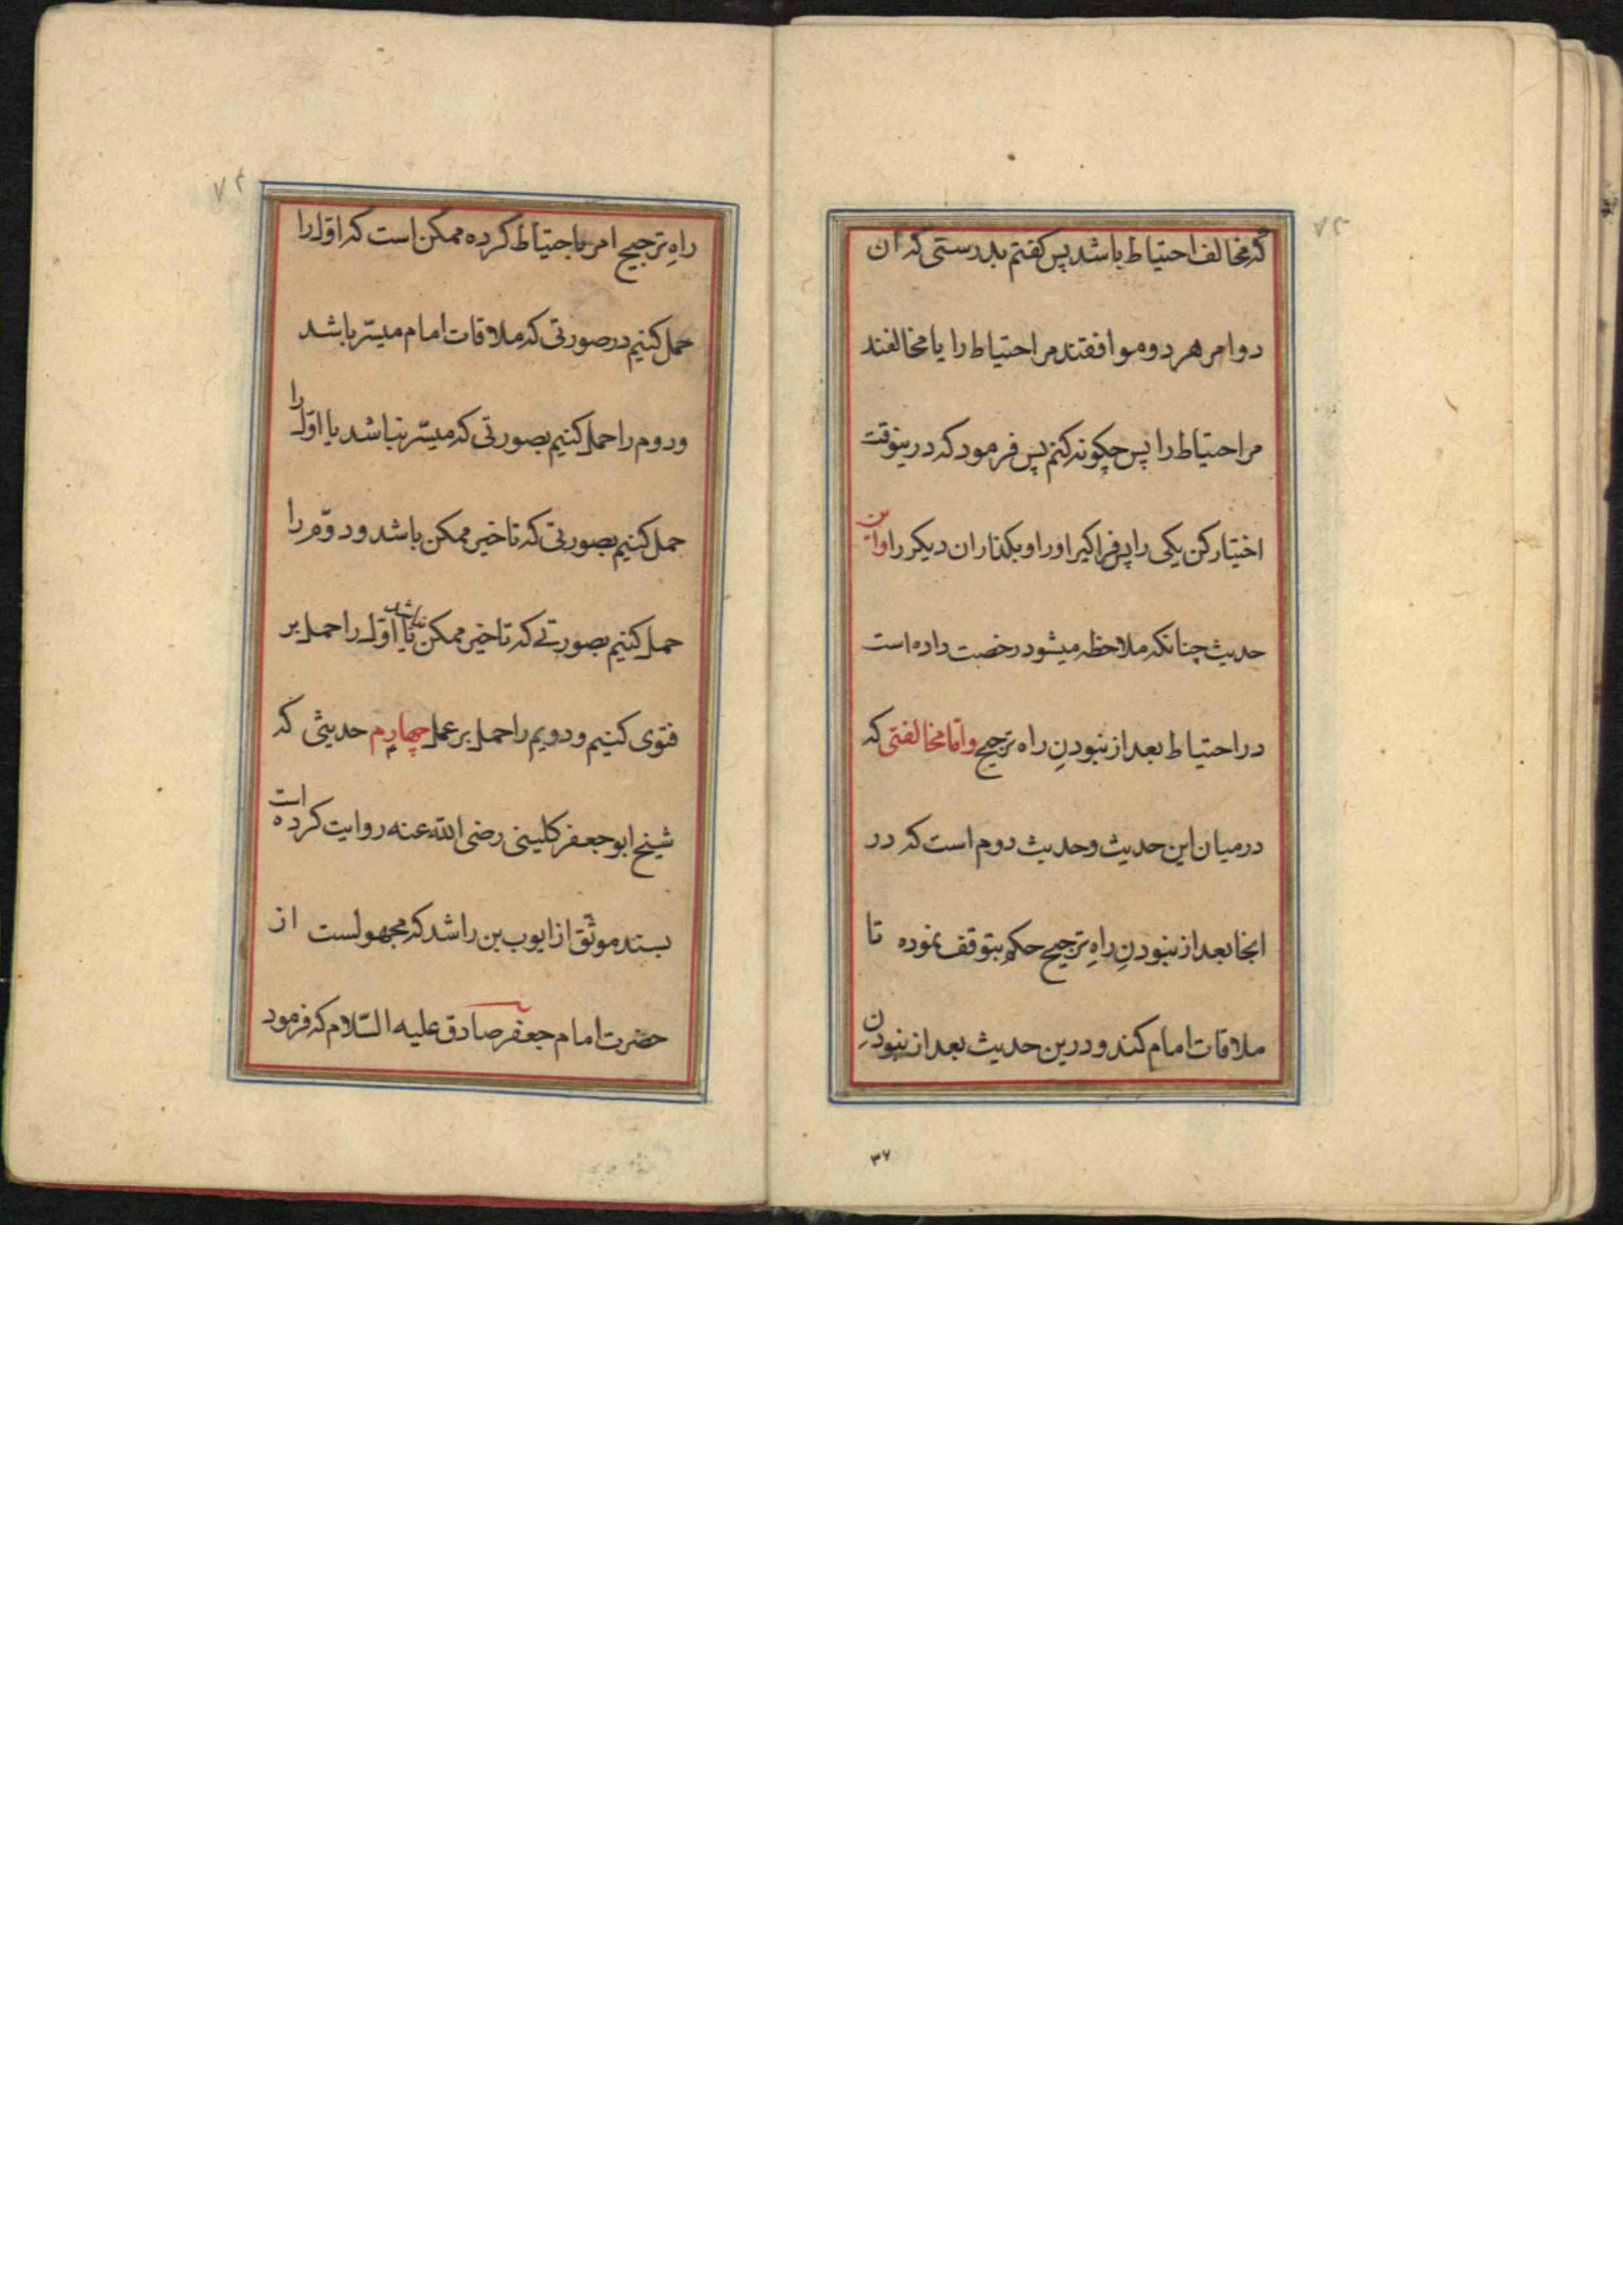 ۷۳
که مخالف احتیاط باشد پس کفتم بدرستی که ان
دو امر هر دو موافقتند مر احتیاط را یا مخالفند
مر احتیاط را پس چکونه کنم پس فرمود که درینوقت
اختیار کن یکی را پس فراکیر او را و بکذار ان دیکر را و این
حدیث چنانکه ملاحظه میشود رخصت داده است
در احتیاط بعد از نبودنِ راه ترجیح و اما مخالفتی که
در میان این حدیث و حدیث دوم است که در
انجا بعد از نبودنِ راهِ ترجیح حکم بتوقف نموده تا
ملاقات امام کند و درین حدیث بعد از نبودنِ
۳۷
۷۴
راهِ ترجیح امر باحتیاط کرده ممکن است که اوّل را
حمل کنیم در صورتی که ملاقات امام میسّر باشد
و دوم را حمل کنیم بصورتی که میسّر نباشد یا اوّل را
حمل کنیم بصورتی که تاخیر ممکن باشد و دوّم را
حمل کنیم بصورتی که تاخیر ممکن نباشد یا اوّل را حمل بر
فتوی کنیم و دویم را حمل بر عمل چهارم حدیثی که
شیخ ابو جعفر کلینی رضی الله عنه روایت کرده است
بسند موثّق از ایوب بن راشد که مجهولست از
حضرت امام جعفر صادق علیه السّلام که فرمود